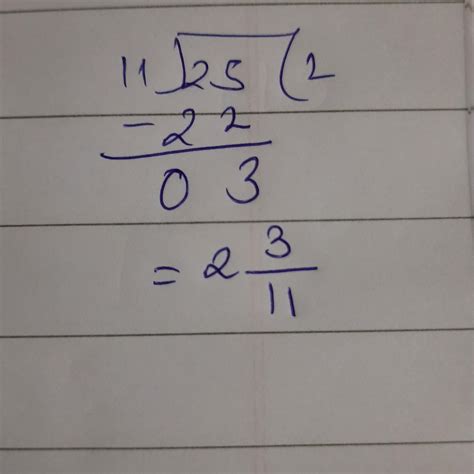 11)25(2
-22
03
= 2 3/11